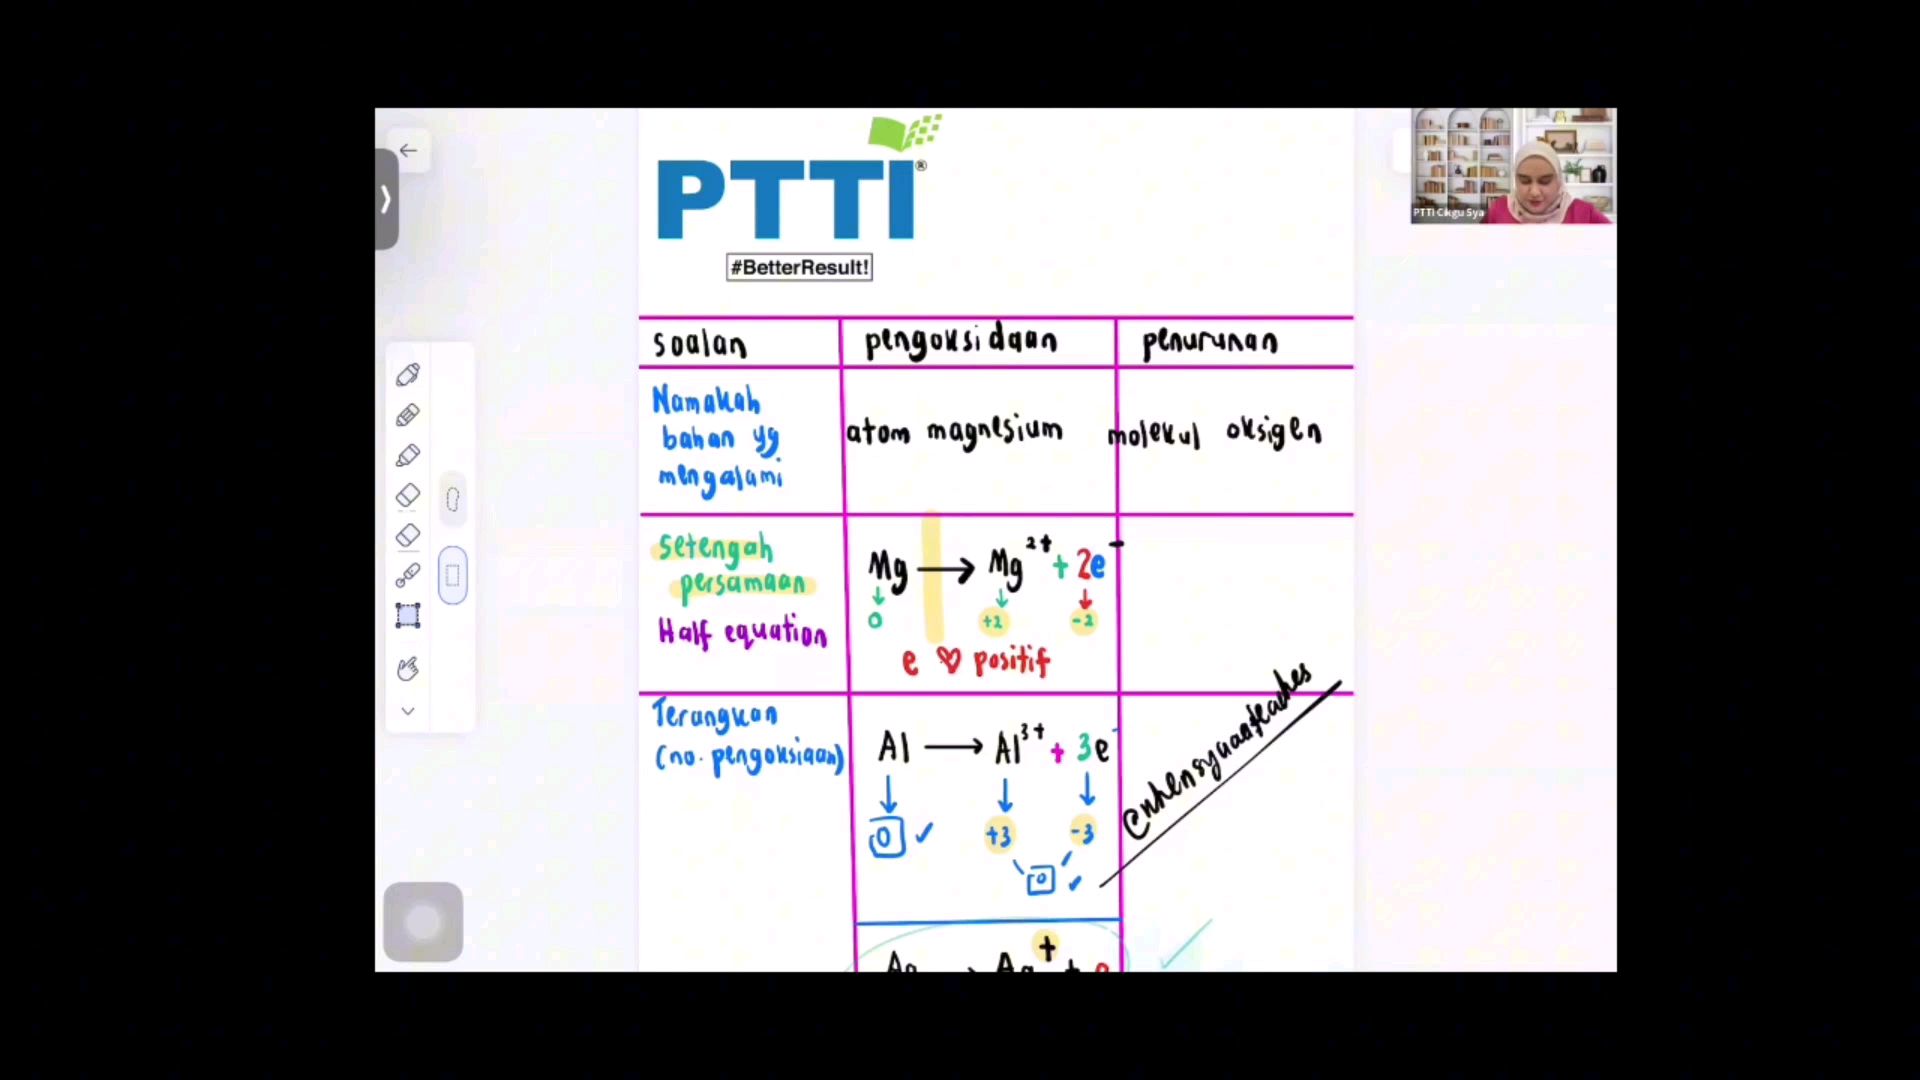 PTTI®
#BetterResult!
PTTI Cikgu Sya
soalan pengoksidaan penurunan
Namakah
bahan yg
mengalami
atom magnesium molekul oksigen
setengah
persamaan
Half equation
Mg → Mg²⁺ + 2e⁻
0 +2 -2
e ♡ positif
Terangkan
(no. pengoksiaan)
Al → Al³⁺ + 3e⁻
0 ✓ +3 -3
0 ✓
@when syuanteaches